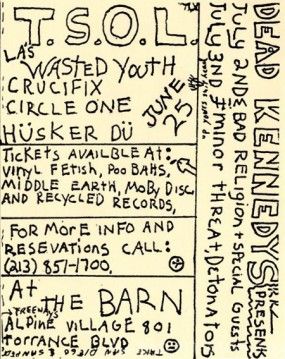 T.S.O.L.
LA'S
WASTED YOUTH
CRUCIFIX
CIRCLE ONE
HÜSKER DÜ
JUNE
25
TICKETS AVAILBLE AT:
VINYL FETISH, POO BAHS,
MIDDLE EARTH, MOBY DISC
AND RECYCLED RECORDS,
FOR MORE INFO AND
RESEVATIONS CALL:
(213) 851-1700,
At THE BARN
ALPINE VILLAGE 801
TORRANCE BLVD
DEAD KENNEDYS
PRESENT
JULY 2ND BAD RELIGION + SPECIAL GUESTS
JULY 3ND MINOR THREAT, DETONATORS